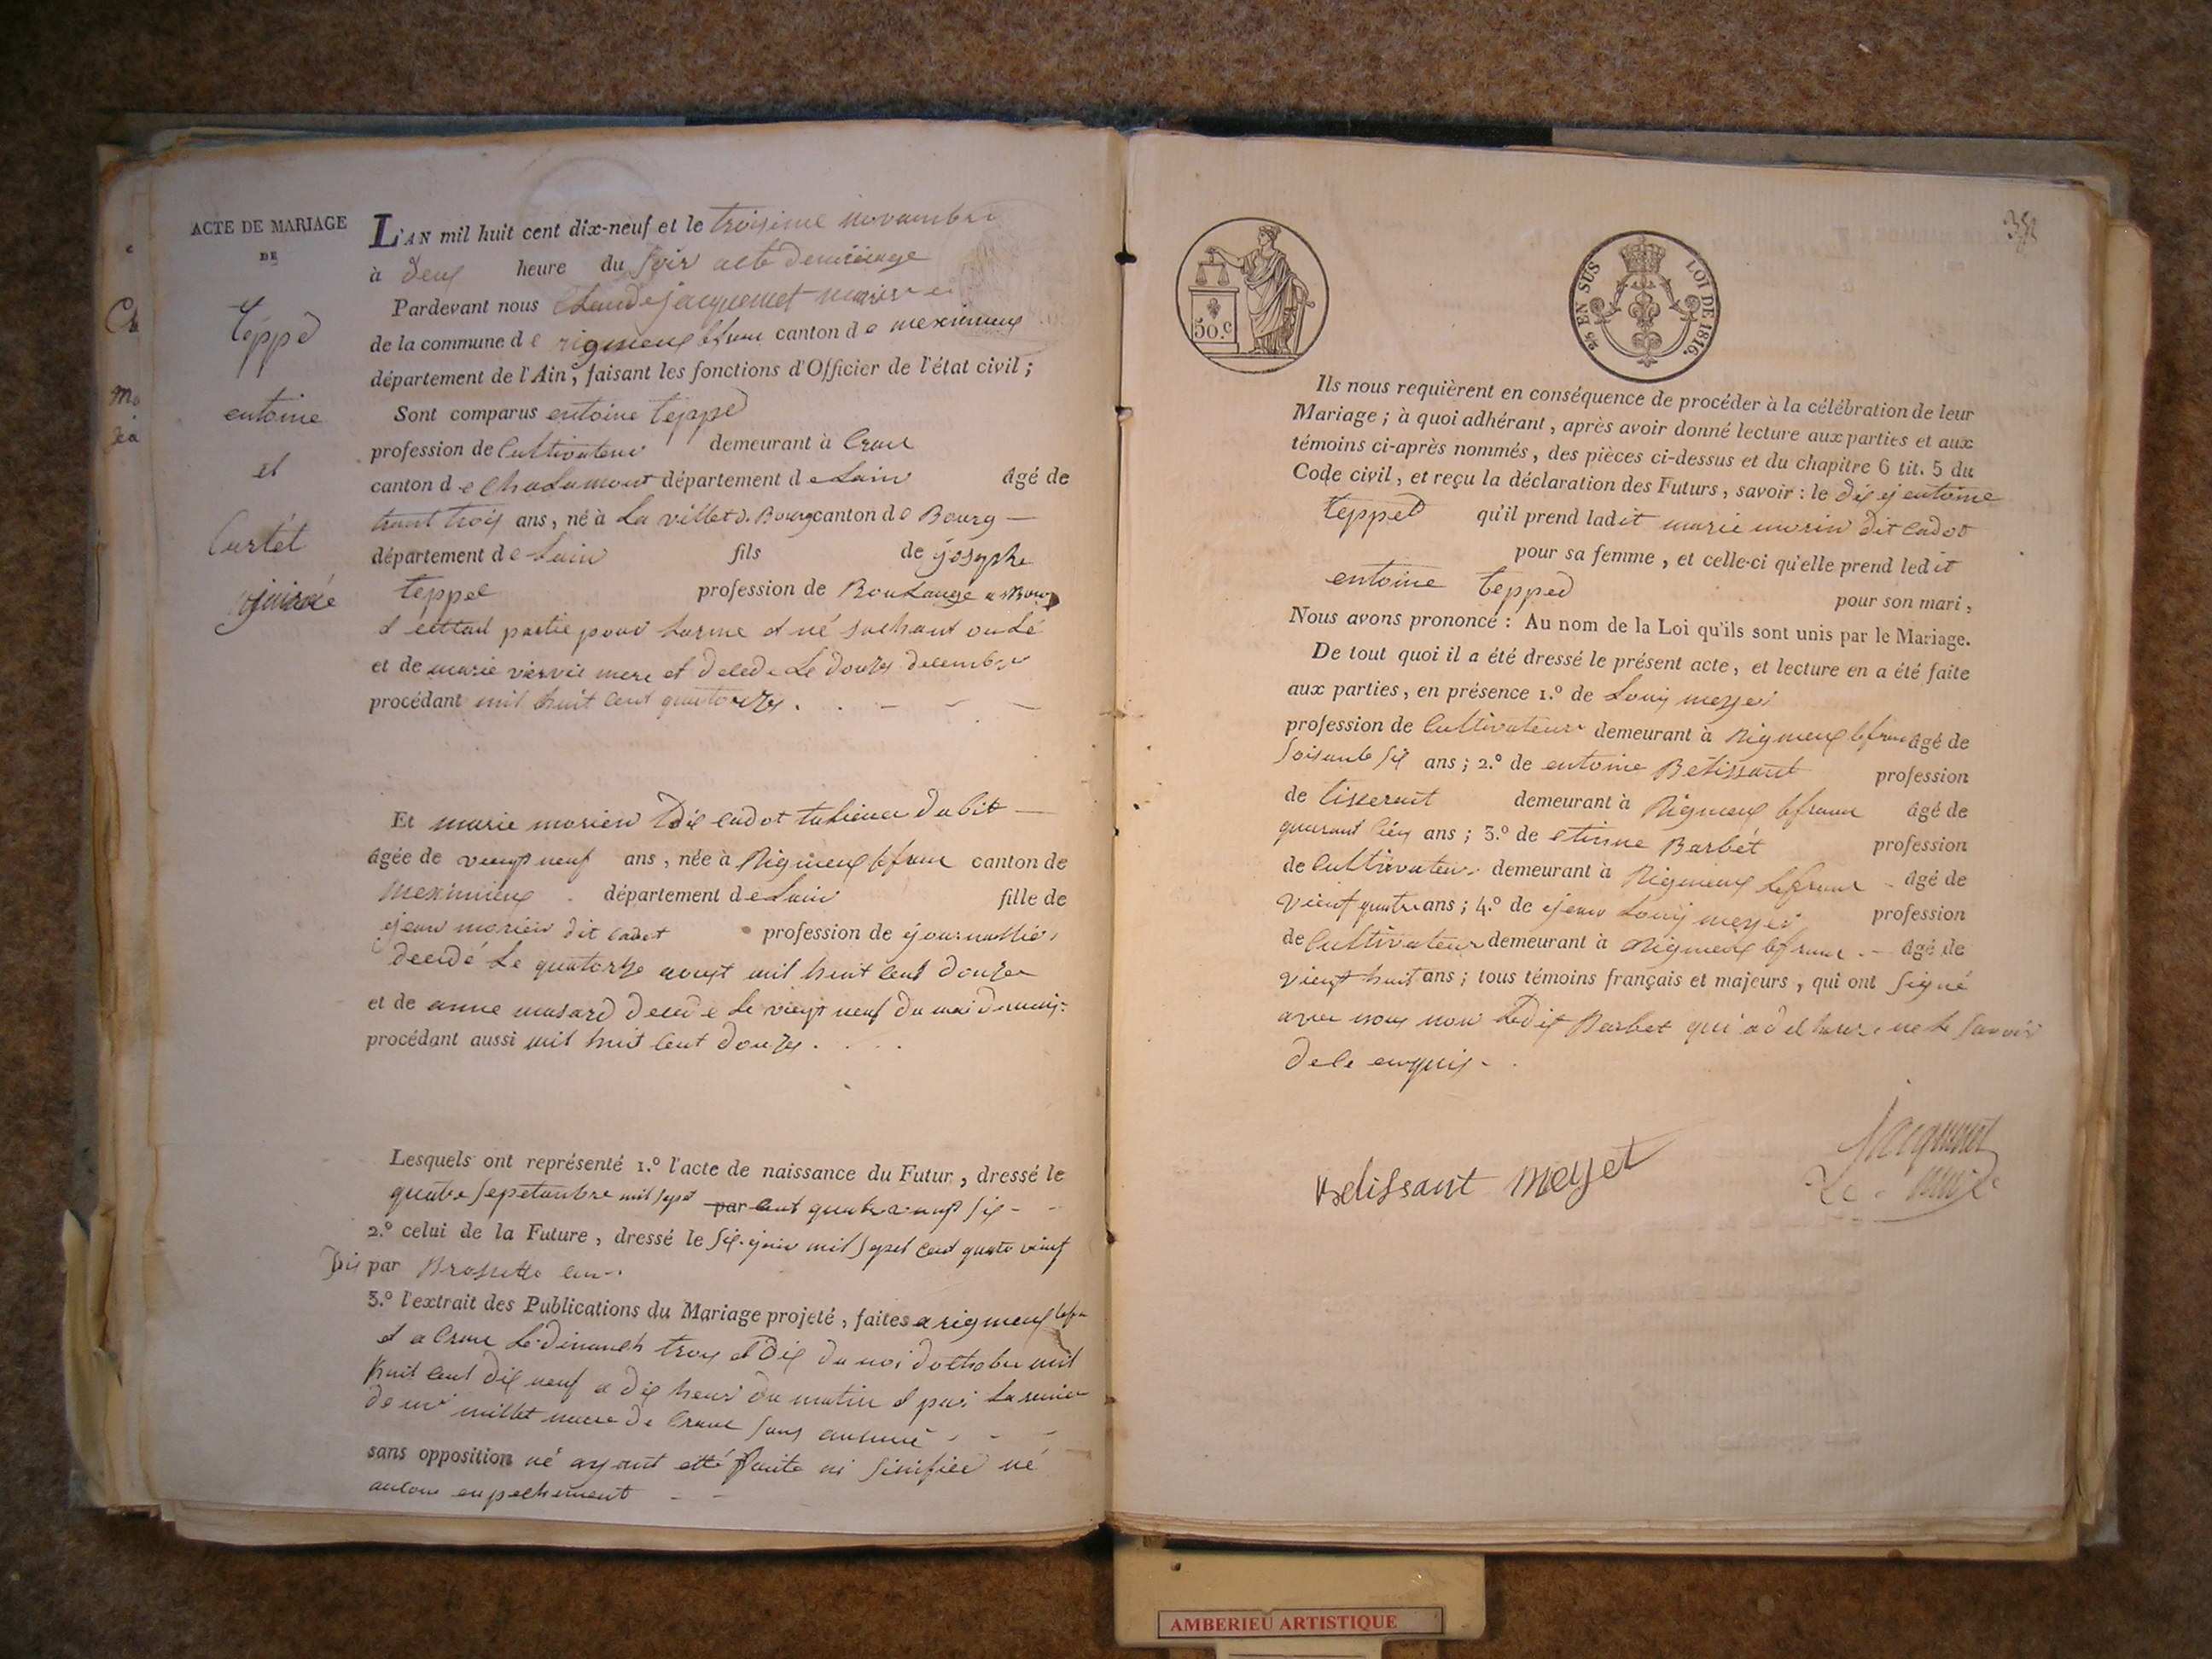 ACTE DE MARIAGE
DE
teppe
entoine
et
Curtét
L'AN mil huit cent dix-neuf et le troisime novambre
à deux heure du soir acte de mariage
Pardevant nous Claude jacquemet maire
de la commune de rigneux le franc canton de meximieux
département de l'Ain, faisant les fonctions d'Officier de l'état civil;
Sont comparus entoine teppe
profession de Cultivateur demeurant à Cran
canton de Chalamont département de Lain âgé de
trant trois ans, né à La ville d. Bourg canton de Bourg
département de Lain fils de josephe
teppe profession de Boulange a Bourg
partie pour et né sachant
et de marie mere et decede Le douze decembre
procédant mil huit cent quatorze
Et marie morien dit cadot
âgée de vingt neuf ans, née à Rigneux le franc canton de
meximieux département de Lain fille de
jean morien dit cadot profession de journallier
decedé Le quatorze aoust mil huit cent douze
et de anne musard decede le vingt neuf du moi de mars
procédant aussi mil huit cent douze
Lesquels ont représenté 1.º l'acte de naissance du Futur, dressé le
quatre sepetambre mil sept par cent quatre vingt six
2.º celui de la Future, dressé le six juin mil sept cent quatre vint
Dis par Brossette
3.º l'extrait des Publications du Mariage projeté, faites a rigneux
et a Crans Le dimanch trois et dix du moi doctobre mil
huit cent dix neuf a dix heur du matin et par
millet maire de Crans sans
sans opposition né ayant etté faite ni sinifiée né
aucun enpechement
50.c
25 EN SUS LOI DE 1816.
Ils nous requièrent en conséquence de procéder à la célébration de leur
Mariage; à quoi adhérant, après avoir donné lecture aux parties et aux
témoins ci-après nommés, des pièces ci-dessus et du chapitre 6 tit. 5 du
Code civil, et reçu la déclaration des Futurs, savoir: le entoine
teppet qu'il prend ladit marie morin dit cadot
pour sa femme, et celle-ci qu'elle prend ledit
entoine tepped pour son mari,
Nous avons prononcé: Au nom de la Loi qu'ils sont unis par le Mariage.
De tout quoi il a été dressé le présent acte, et lecture en a été faite
aux parties, en présence 1.º de Louis
profession de Cultivateur demeurant à Rigneux le franc âgé de
soisante six ans; 2.º de entoine Belissant profession
de tisserant demeurant à Rigneux le franc âgé de
quarant ans; 3.º de etiene Barbét profession
de Cultivateur demeurant à Rigneux le franc âgé de
vient quatre ans; 4.º de jean Louis profession
de Cultivateur demeurant à Rigneux le franc âgé de
vient huit ans; tous témoins français et majeurs, qui ont signé
avec nous non Ledit Barbet qui a ne le savoir
de ce enquis
Belissant Meyet
Jacquemet
Le maire
AMBERIEU ARTISTIQUE